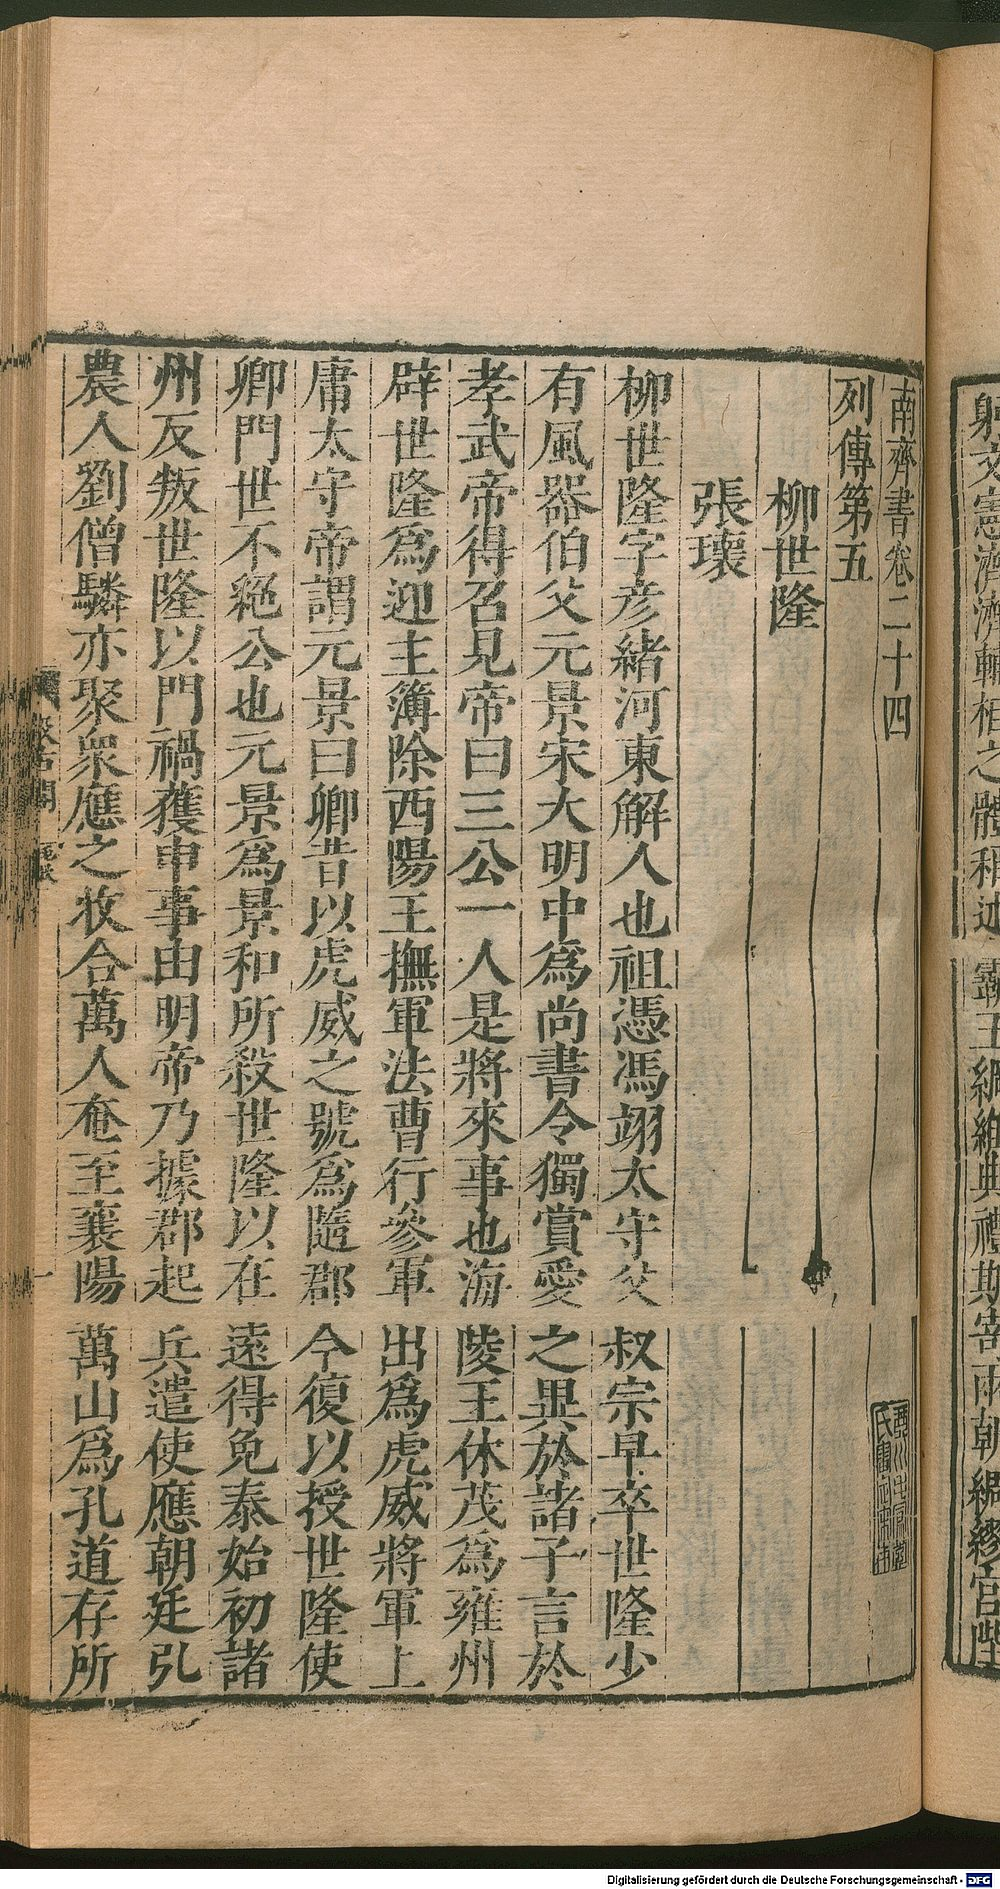 躬文憲濟濟輔相之體稱述霸王綱維典禮期寄兩朝綢繆宮陛
南齊書卷二十四
列傳第五
柳世隆
張瓌
柳世隆字彥緒河東解人也祖憑馮翊太守父叔宗早卒世隆少
有風器伯父元景宋大明中爲尚書令獨賞愛之異於諸子言於
孝武帝得召見帝曰三公一人是將來事也海陵王休茂爲雍州
辟世隆爲迎主簿除西陽王撫軍法曹行參軍出爲虎威將軍上
庸太守帝謂元景曰卿昔以虎威之號爲隨郡今復以授世隆使
卿門世不絕公也元景爲景和所殺世隆以在遠得免泰始初諸
州反叛世隆以門禍獲申事由明帝乃據郡起兵遣使應朝廷弘
農人劉僧驎亦聚衆應之收合萬人奄至襄陽萬山爲孔道存所
汲古閣
一
Digitalisierung gefördert durch die Deutsche Forschungsgemeinschaft - DFG